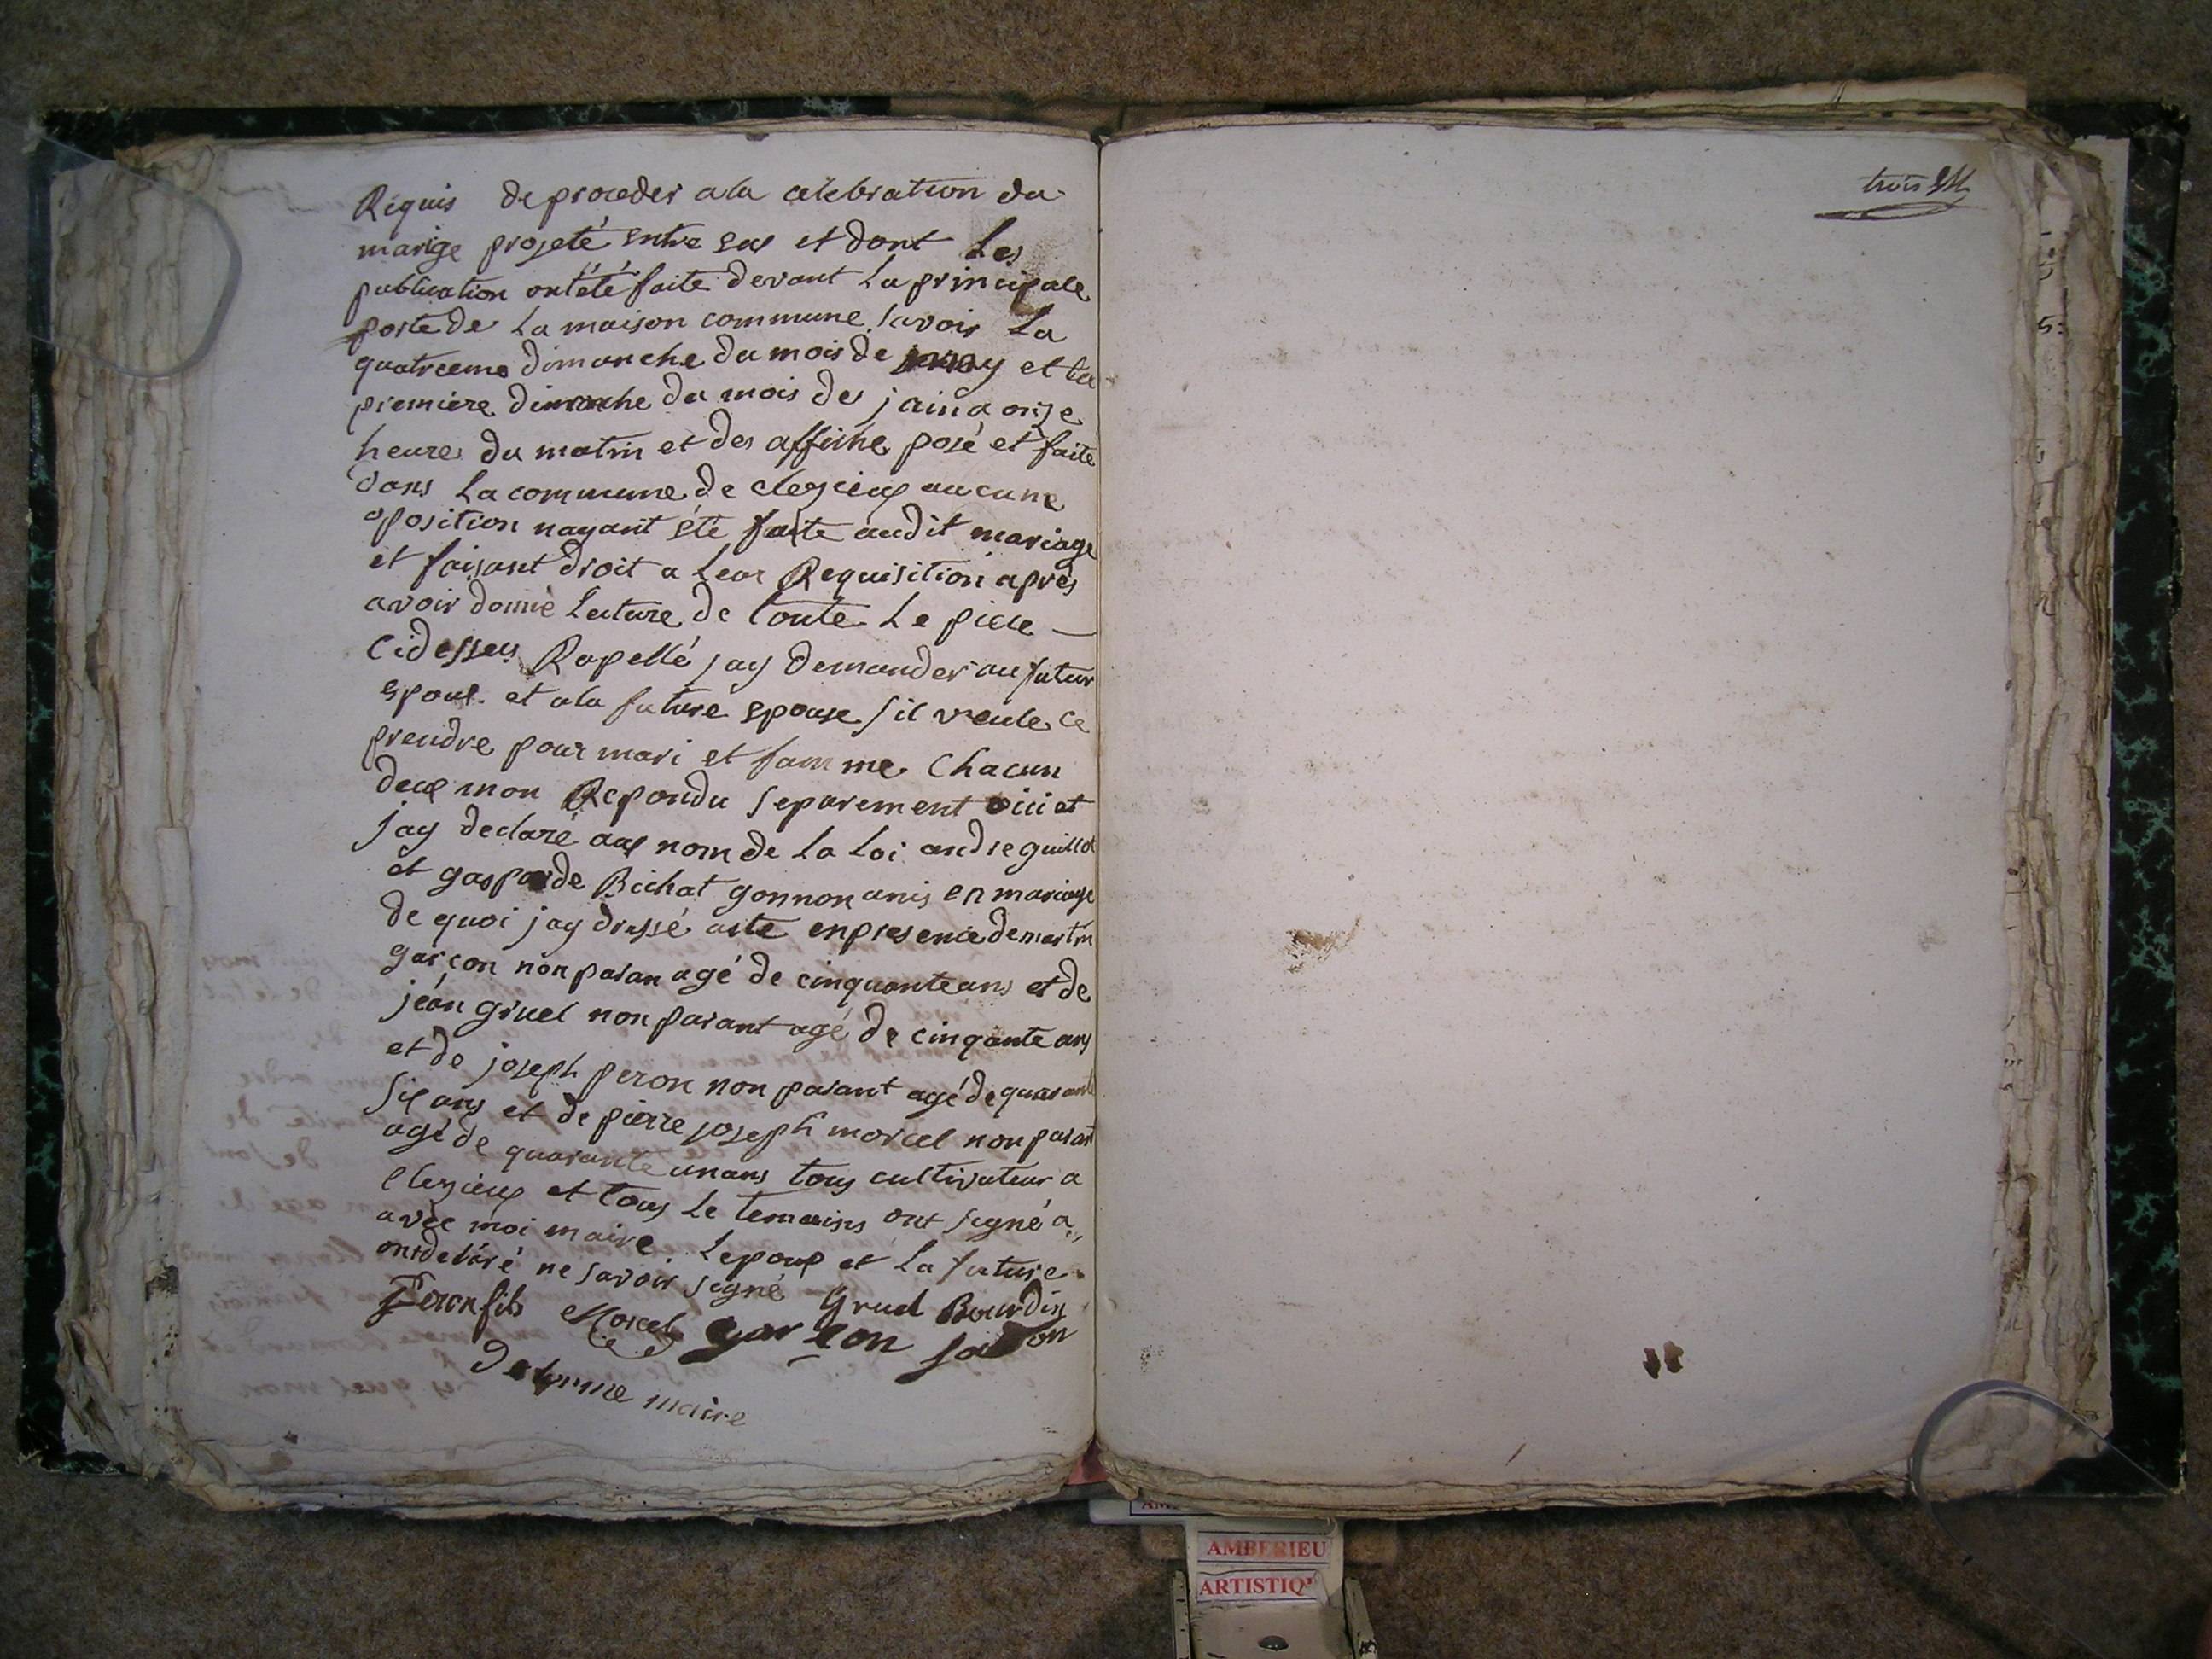 Requis de proceder a la celebration du
marige projeté entre eux et dont Les
publication ont été faite devant La principale
porte de La maison commune Savoir La
quatrieme dimanche du mois de may et la
premiere dimanche du mois de juin a onze
heures du matin et des affiche posé et faite
dans La commune de clezieux aucune
oposition nayant été faite audit mariage
et faisant droit a Leur Requisition aprés
avoir donné Lecture de toute Le piece
Cidessus Rapellé jay demander au futur
epoux et a la future epouse sil veule ce
prendre pour mari et famme Chacun
deux mon Repondu separement oui et
jay declaré aux nom de La Loi andre guillot
et gasparde Bichat gonnon unis en mariage
de quoi jay dressé acte en presence de martin
garcon non paran agé de cinquante ans et de
jean gruel non parant agé de cinqante ans
et de joseph peron non parant agé de quarante
six ans et de pierre joseph morcel non parant
agé de quarante un ans tous cultivateur a
clezieux et tous Le temoins ont signé a
avec moi maire Lepoux et La future
ont declaré ne savoir signé
Peron fils Morcel Gruel Bourdin
garcon
maire
trois
AMBERIEU
ARTISTIQ